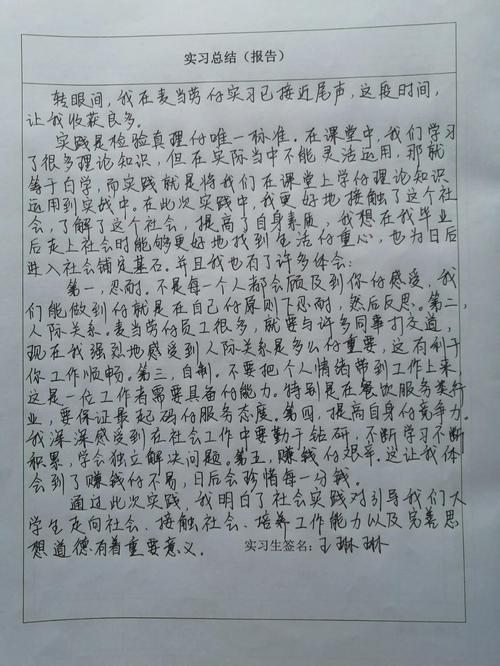 实习总结（报告）
转眼间，我在麦当劳的实习已接近尾声，这段时间，
让我收获良多。
实践是检验真理的唯一标准。在课堂中，我们学习
了很多理论知识，但在实际当中不能灵活运用，那就
等于白学，而实践就是将我们在课堂上学的理论知识
运用到实战中。在此次实践中，我更好地接触了这个社
会，了解了这个社会，提高了自身素质，我想在我毕业
后走上社会时能够更好地找到生活的重心，也为日后
进入社会铺定基石。并且我也有了许多体会：
第一，忍耐。不是每一个人都会顾及到你的感受，我
们能做到的就是在自己的原则下忍耐，然后反思。第二，
人际关系。麦当劳的员工很多，就要与许多同事打交道，
现在我强烈地感受到人际关系是多么的重要，这有利于
你工作顺畅。第三，自制。不要把个人情绪带到工作上来，
这是一位工作者需要具备的能力。特别是在餐饮服务类行
业，要保证最起码的服务态度。第四，提高自身的竞争力。
我深深感受到在社会工作中要勤于钻研，不断学习不断
积累，学会独立解决问题。第五，赚钱的艰辛。这让我体
会到了赚钱的不易，日后会珍惜每一分钱。
通过此次实践，我明白了社会实践对引导我们大
学生走向社会、接触社会、培养工作能力以及完善思
想道德有着重要意义。 实习生签名：王琳琳